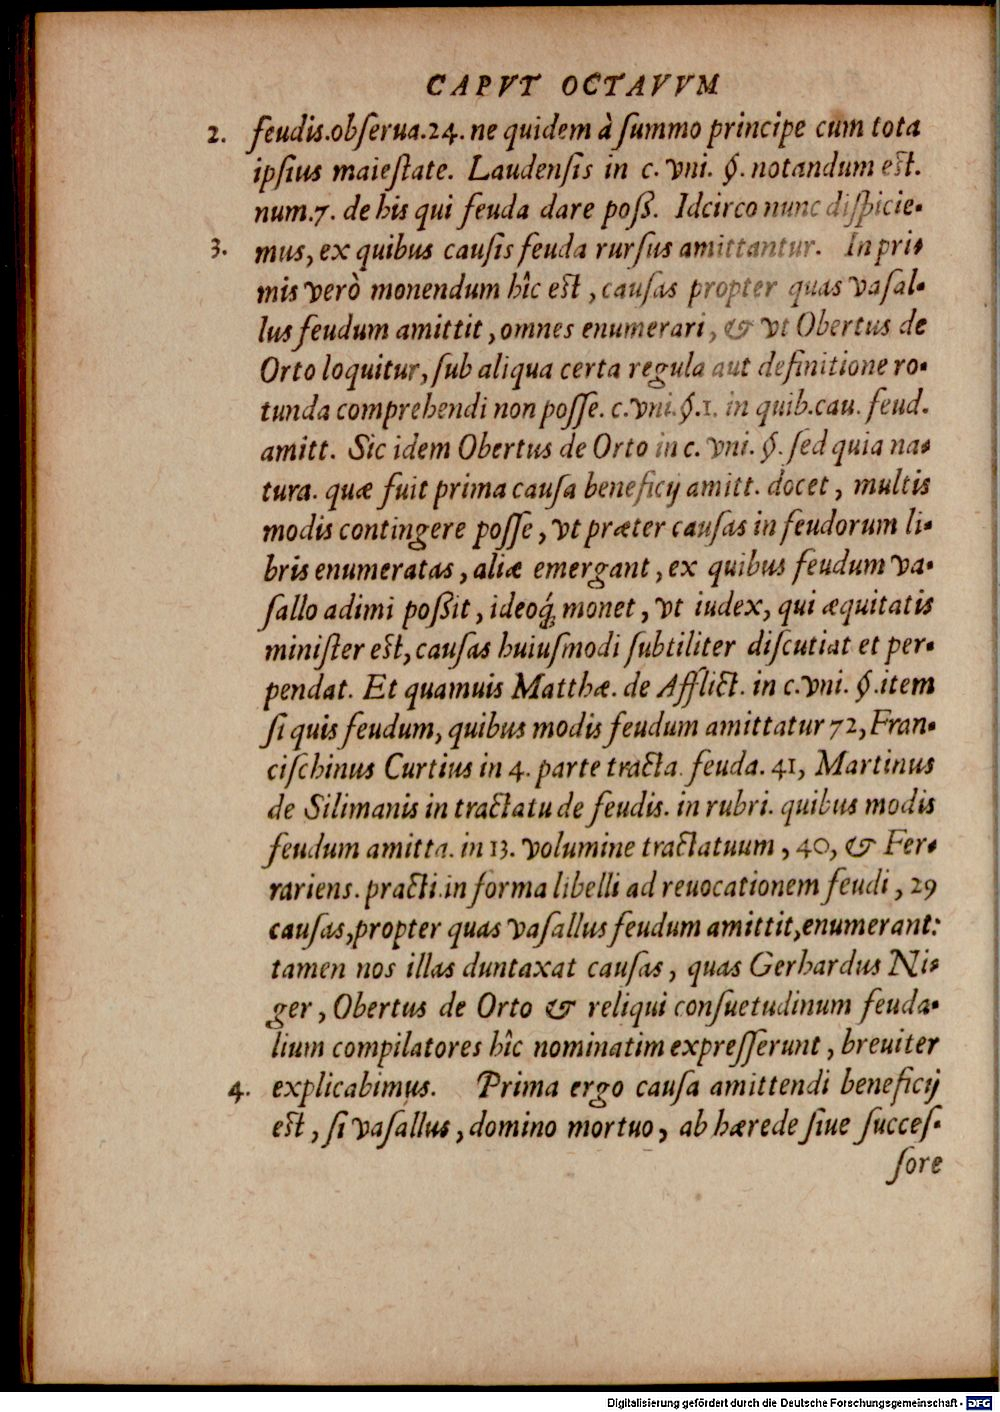 CAPVT OCTAVVM
2. feudis.obſerua.24. ne quidem à ſummo principe cum tota
ipſius maieſtate. Laudenſis in c. vni. §. notandum est.
num.7. de his qui feuda dare poſß. Idcirco nunc diſpicie-
3. mus, ex quibus cauſis feuda rurſus amittantur. In pri-
mis verò monendum hîc est, cauſas propter quas vaſal-
lus feudum amittit, omnes enumerari, & vt Obertus de
Orto loquitur, ſub aliqua certa regula aut definitione ro-
tunda comprehendi non poſſe. c.vni.§.1. in quib.cau. feud.
amitt. Sic idem Obertus de Orto in c. vni. §. ſed quia na-
tura. quæ fuit prima cauſa beneficij amitt. docet, multis
modis contingere poſſe, vt præter cauſas in feudorum li-
bris enumeratas, aliæ emergant, ex quibus feudum va-
ſallo adimi poßit, ideoq́; monet, vt iudex, qui æquitatis
miniſter est, cauſas huiuſmodi ſubtiliter diſcutiat et per-
pendat. Et quamuis Matthæ. de Afflict. in c.vni. §.item
ſi quis feudum, quibus modis feudum amittatur 72, Fran-
ciſchinus Curtius in 4. parte tracta. feuda. 41, Martinus
de Silimanis in tractatu de feudis. in rubri. quibus modis
feudum amitta. in 13. volumine tractatuum, 40, & Fer-
rariens. practi.in forma libelli ad reuocationem feudi, 29
cauſas,propter quas vaſallus feudum amittit,enumerant:
tamen nos illas duntaxat cauſas, quas Gerhardus Ni-
ger, Obertus de Orto & reliqui conſuetudinum feuda-
lium compilatores hîc nominatim expreſſerunt, breuiter
4. explicabimus. Prima ergo cauſa amittendi beneficij
est, ſi vaſallus, domino mortuo, ab hærede ſiue ſucceſ-
ſore
Digitalisierung gefördert durch die Deutsche Forschungsgemeinschaft - DFG